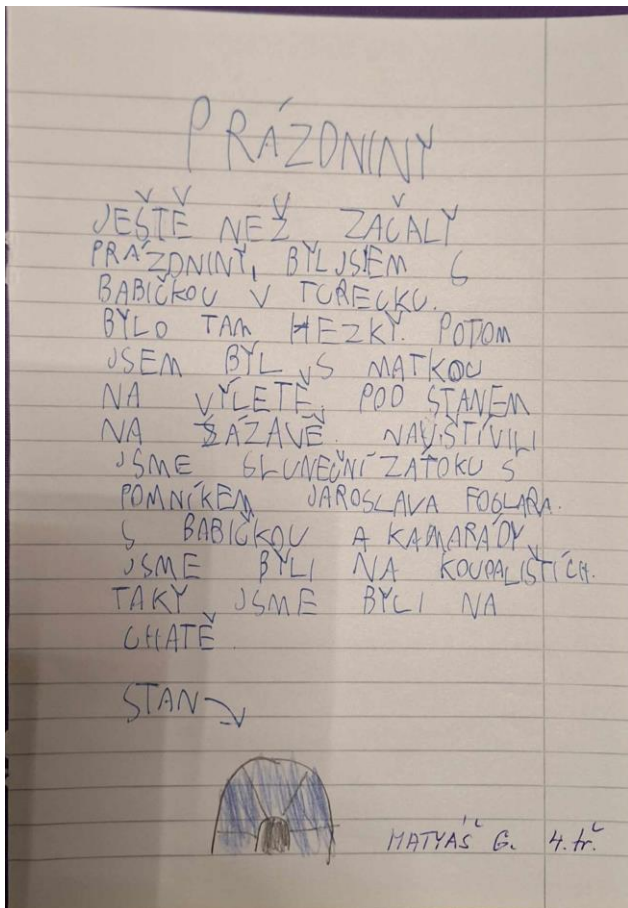 PRÁZDNINY
JEŠTĚ NEŽ ZAČALY
PRÁZDNINY, BYL JSEM S
BABIČKOU V TURECKU.
BYLO TAM HEZKY. POTOM
JSEM BYL S MATKOU
NA VÝLETĚ POD STANEM
NA SÁZAVĚ. NAVŠTÍVILI
JSME SLUNEČNÍ ZÁTOKU S
POMNÍKEM JAROSLAVA FOGLARA.
S BABIČKOU A KAMARÁDY
JSME BYLI NA KOUPALIŠTÍCH.
TAKY JSME BYLI NA
CHATĚ.
STAN
MATYÁŠ G. 4. tř.